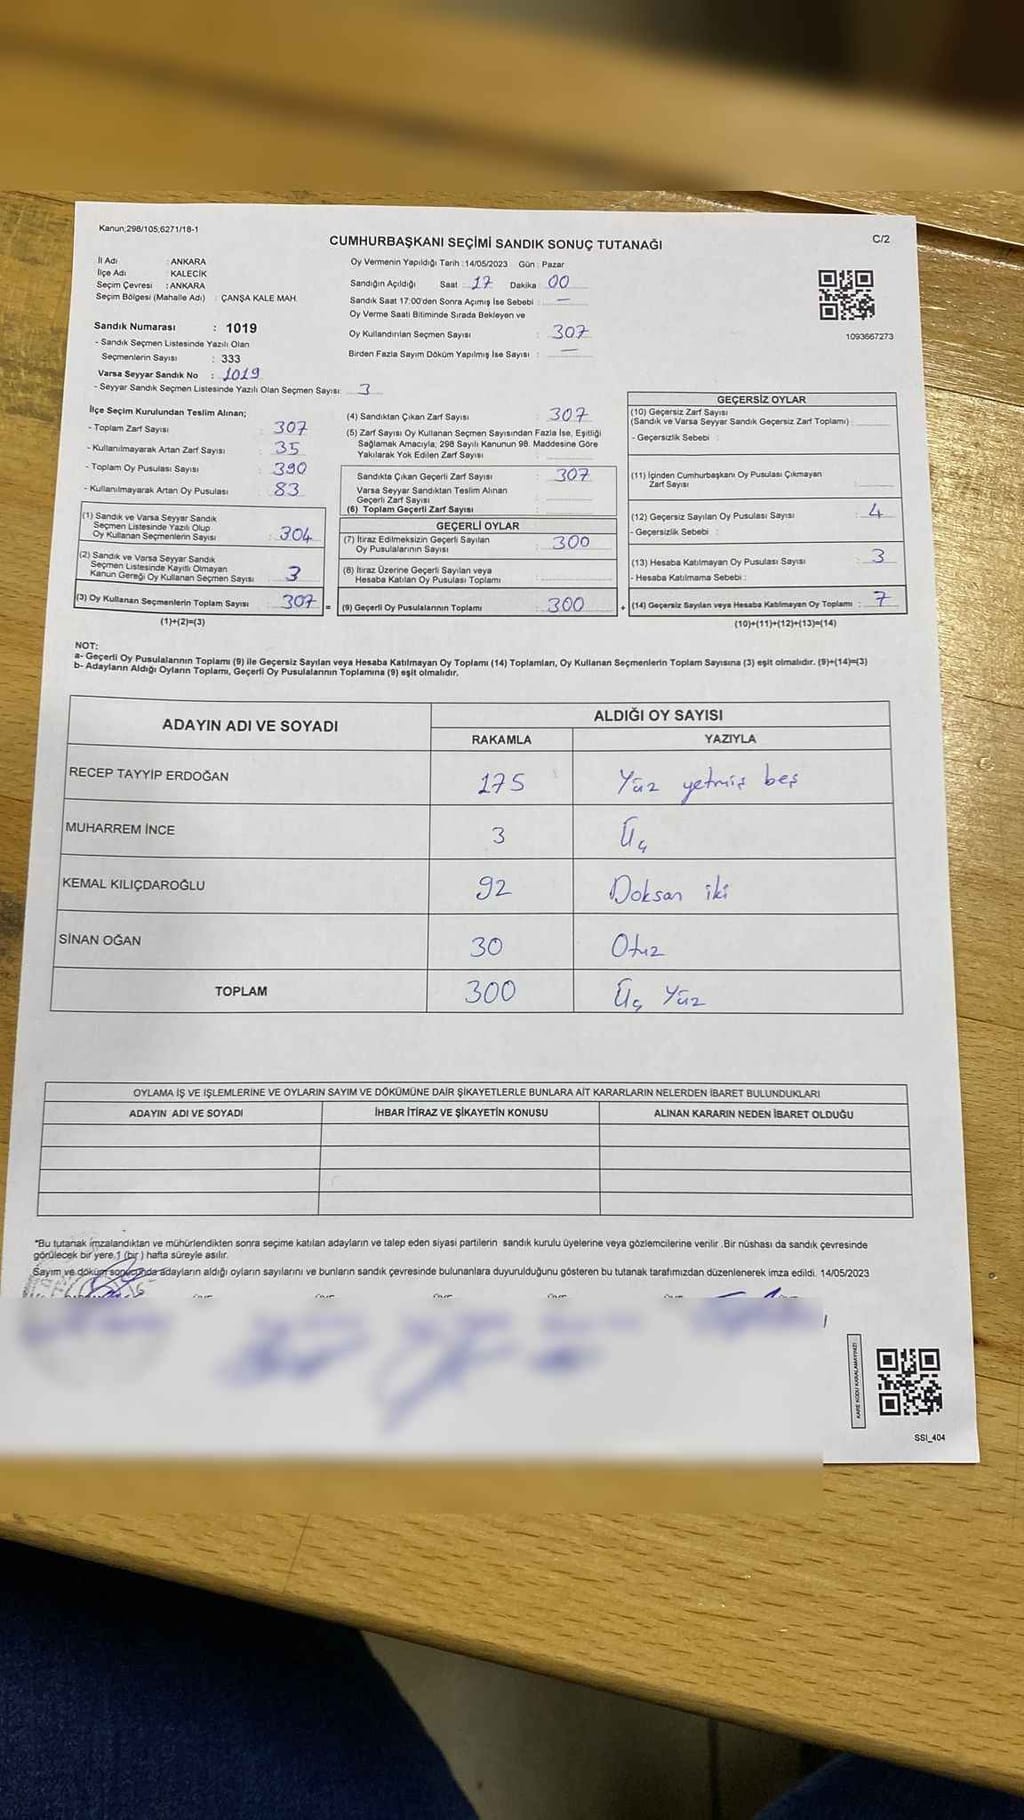 Kanun;298/105,6271/18-1
C/2
CUMHURBAŞKANI SEÇİMİ SANDIK SONUÇ TUTANAĞI
İl Adı : ANKARA
İlçe Adı : KALECİK
Seçim Çevresi : ANKARA
Seçim Bölgesi (Mahalle Adı) : ÇANŞA KALE MAH.
Oy Vermenin Yapıldığı Tarih :14/05/2023 Gün : Pazar
Sandığın Açıldığı Saat 17 Dakika 00
Sandık Saat 17:00'den Sonra Açımış İse Sebebi : —
Oy Verme Saati Bitiminde Sırada Bekleyen ve
Oy Kullandırılan Seçmen Sayısı : 307
Birden Fazla Sayım Döküm Yapılmış İse Sayısı : —
1093667273
Sandık Numarası : 1019
- Sandık Seçmen Listesinde Yazılı Olan
Seçmenlerin Sayısı : 333
Varsa Seyyar Sandık No : 1019
- Seyyar Sandık Seçmen Listesinde Yazılı Olan Seçmen Sayısı: 3
İlçe Seçim Kurulundan Teslim Alınan;
- Toplam Zarf Sayısı : 307
- Kullanılmayarak Artan Zarf Sayısı : 35
- Toplam Oy Pusulası Sayısı : 390
- Kullanılmayarak Artan Oy Pusulası : 83
(1) Sandık ve Varsa Seyyar Sandık
Seçmen Listesinde Yazılı Olup
Oy Kullanan Seçmenlerin Sayısı : 304
(2) Sandık ve Varsa Seyyar Sandık
Seçmen Listesinde Kayıtlı Olmayan
Kanun Gereği Oy Kullanan Seçmen Sayısı : 3
(3) Oy Kullanan Seçmenlerin Toplam Sayısı : 307
(1)+(2)=(3)
=
(4) Sandıktan Çıkan Zarf Sayısı : 307
(5) Zarf Sayısı Oy Kullanan Seçmen Sayısından Fazla İse, Eşitliği
Sağlamak Amacıyla, 298 Sayılı Kanunun 98. Maddesine Göre
Yakılarak Yok Edilen Zarf Sayısı :
Sandıkta Çıkan Geçerli Zarf Sayısı : 307
Varsa Seyyar Sandıktan Teslim Alınan
Geçerli Zarf Sayısı
(6) Toplam Geçerli Zarf Sayısı
GEÇERLİ OYLAR
(7) İtiraz Edilmeksizin Geçerli Sayılan
Oy Pusulalarının Sayısı : 300
(8) İtiraz Üzerine Geçerli Sayılan veya
Hesaba Katılan Oy Pusulası Toplamı :
(9) Geçerli Oy Pusulalarının Toplamı : 300
+
GEÇERSİZ OYLAR
(10) Geçersiz Zarf Sayısı
(Sandık ve Varsa Seyyar Sandık Geçersiz Zarf Toplamı) :
- Geçersizlik Sebebi :
(11) İçinden Cumhurbaşkanı Oy Pusulası Çıkmayan
Zarf Sayısı :
(12) Geçersiz Sayılan Oy Pusulası Sayısı : 4
- Geçersizlik Sebebi :
(13) Hesaba Katılmayan Oy Pusulası Sayısı : 3
- Hesaba Katılmama Sebebi :
(14) Geçersiz Sayılan veya Hesaba Katılmayan Oy Toplamı : 7
(10)+(11)+(12)+(13)=(14)
NOT:
a- Geçerli Oy Pusulalarının Toplamı (9) ile Geçersiz Sayılan veya Hesaba Katılmayan Oy Toplamı (14) Toplamları, Oy Kullanan Seçmenlerin Toplam Sayısına (3) eşit olmalıdır. (9)+(14)=(3)
b- Adayların Aldığı Oyların Toplamı, Geçerli Oy Pusulalarının Toplamına (9) eşit olmalıdır.
ADAYIN ADI VE SOYADI
ALDIĞI OY SAYISI
RAKAMLA YAZIYLA
RECEP TAYYİP ERDOĞAN 175 Yüz yetmiş beş
MUHARREM İNCE 3 Üç
KEMAL KILIÇDAROĞLU 92 Doksan iki
SİNAN OĞAN 30 Otuz
TOPLAM 300 Üç Yüz
OYLAMA İŞ VE İŞLEMLERİNE VE OYLARIN SAYIM VE DÖKÜMÜNE DAİR ŞİKAYETLERLE BUNLARA AİT KARARLARIN NELERDEN İBARET BULUNDUKLARI
ADAYIN ADI VE SOYADI İHBAR İTİRAZ VE ŞİKAYETİN KONUSU ALINAN KARARIN NEDEN İBARET OLDUĞU
"Bu tutanak imzalandıktan ve mühürlendikten sonra seçime katılan adayların ve talep eden siyasi partilerin sandık kurulu üyelerine veya gözlemcilerine verilir .Bir nüshası da sandık çevresinde
görülecek bir yere 1 (bir ) hafta süreyle asılır.
Sayım ve döküm sonucunda adayların aldığı oyların sayılarını ve bunların sandık çevresinde bulunanlara duyurulduğunu gösteren bu tutanak tarafımızdan düzenlenerek imza edildi. 14/05/2023
KARE KODU KARALAMAYINIZ!
SSI_404